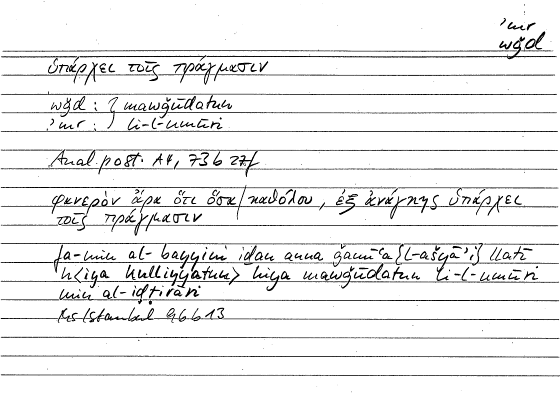 ʾmr
wǧd
ὑπάρχει τοῖς πράγμασιν
wǧd : } mawǧūdatun
ʾmr : ) li-l-umūri
Anal. post. A4, 73b 27f
φανερὸν ἄρα ὅτι ὅσα / καθόλου, ἐξ ἀνάγκης ὑπάρχει
τοῖς πράγμασιν
fa-min al-bayyini iḏan anna ǧamīʿa {l-ašyāʾi} llatī
h<iya kulliyyatun> hiya mawǧūdatun li-l-umūri
min al-iḍṭirāri
Ms Istanbul